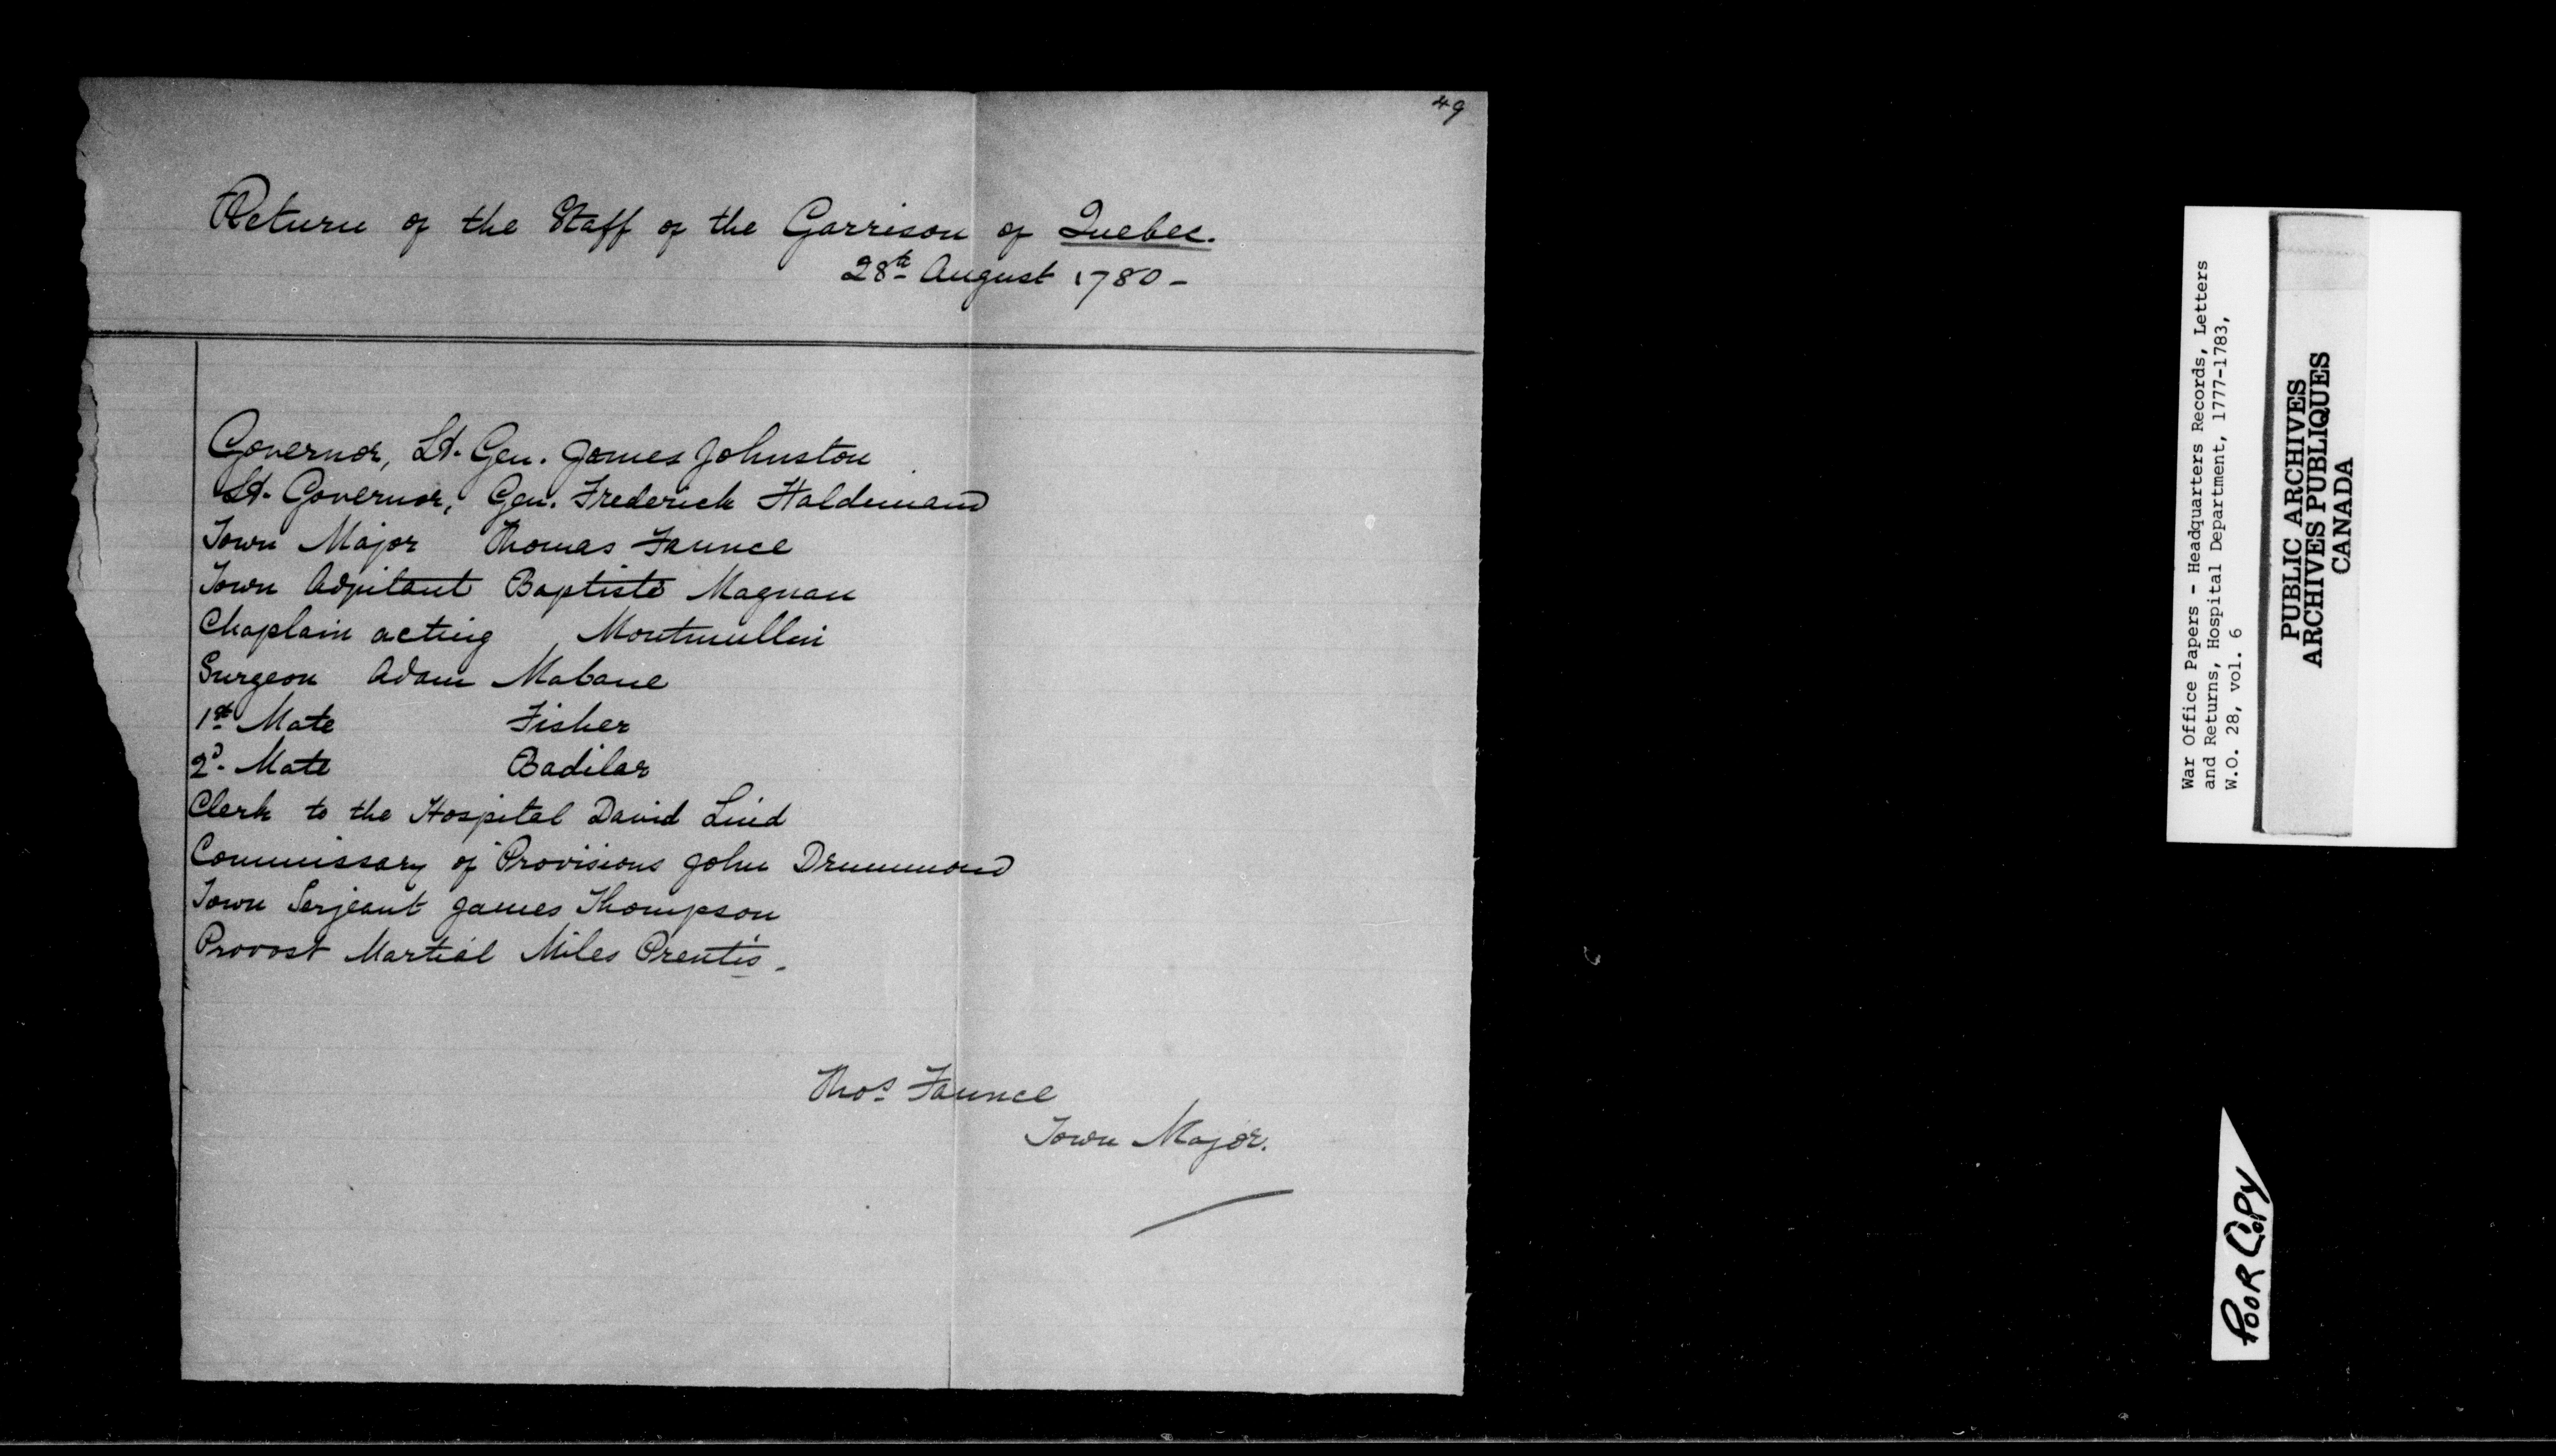 49
Return of the Staff of the Garrison of Quebec.
28th August 1780 -
Governor, Lt. Gen. James Johnston
Lt. Governor, Gen. Frederick Haldimand
Town Major Thomas Faunce
Town Adjutant Baptiste Magnan
Chaplain acting Montmullin
Surgeon Adam Mabane
1st Mate Fisher
2d. Mate Badilar
Clerk to the Hospital David Lind
Commissary of Provisions John Drummond
Town Serjeant James Thompson
Provost Martial Miles Prentis.
Thos Faunce
Town Major.
War Office Papers - Headquarters Records, Letters
and Returns, Hospital Department, 1777-1783,
W.O. 28, vol. 6
PUBLIC ARCHIVES
ARCHIVES PUBLIQUES
CANADA
POOR COPY